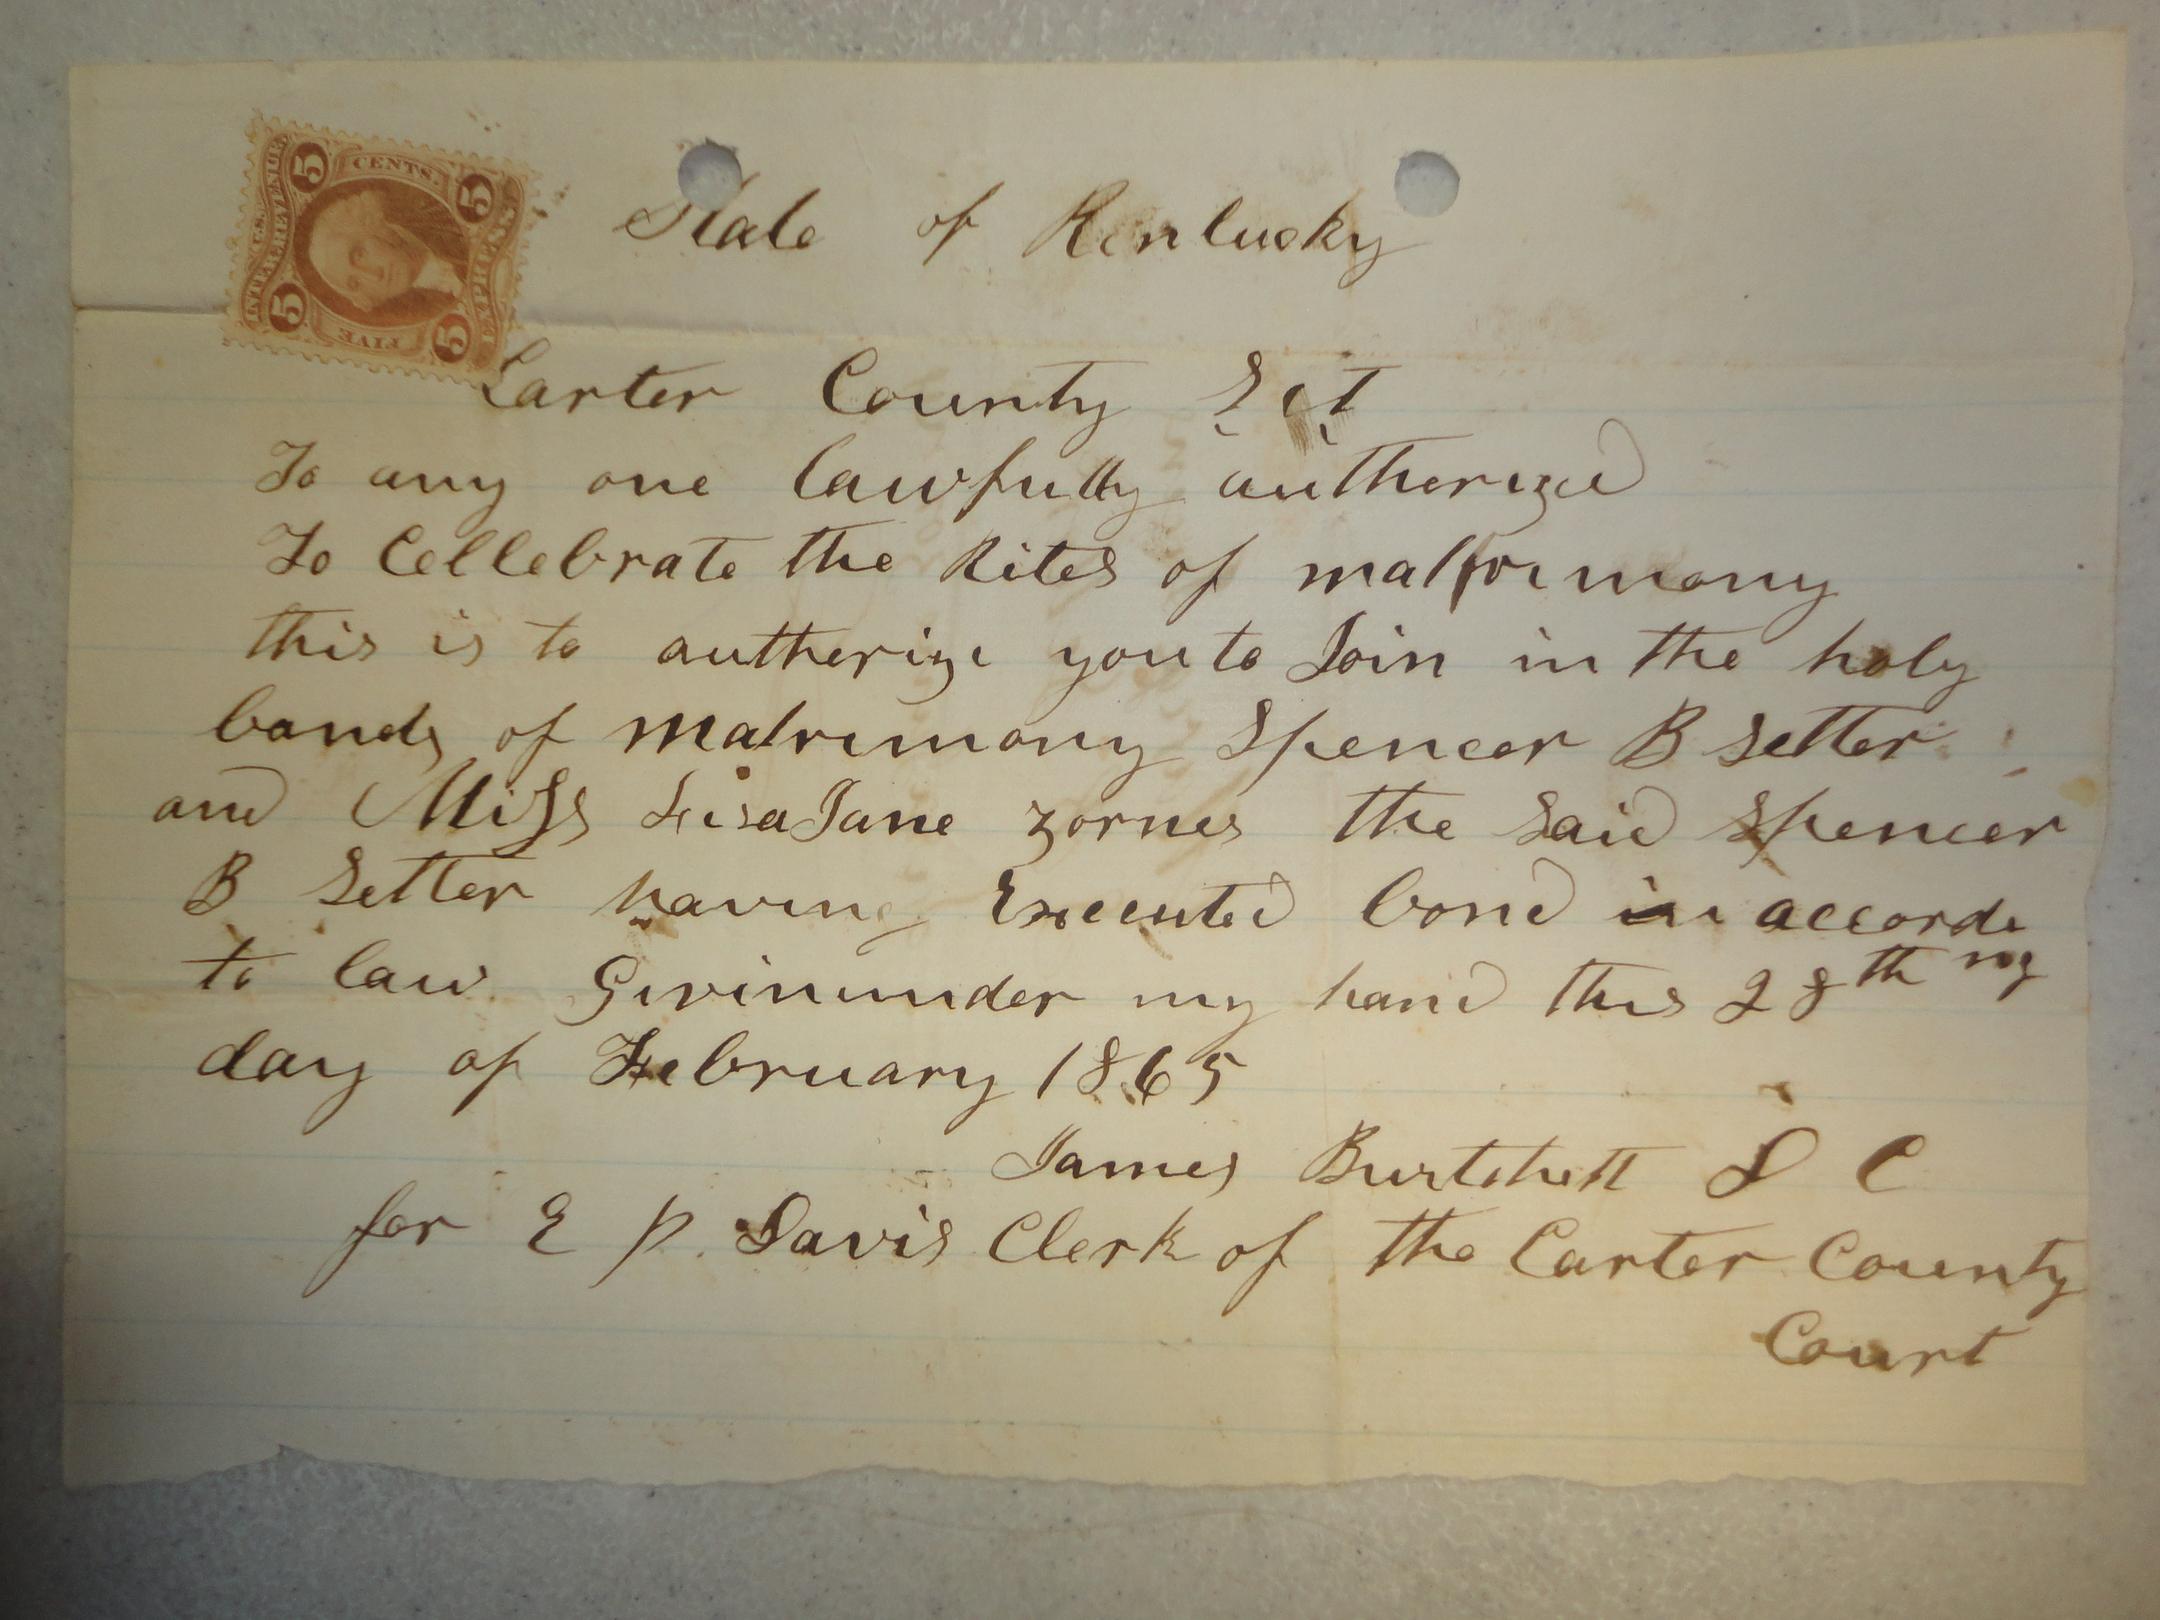 5 CENTS. 5
U.S. INTER. REVENUE
EXPRESS
5 FIVE 5
State of Kentucky
Carter County Sct
To any one lawfully autherized
To Cellebrate the Rites of matrimony
this is to autherize you to Join in the holy
bonds of matrimony Spencer B Setter
and Miss Lisa Jane zornes the Said Spencer
B Setter having Executed bond in accordi
to law Givinunder my hand this 28th ng
day of February 1865
James Burtchett D C
for E P. Davis Clerk of the Carter County
Court